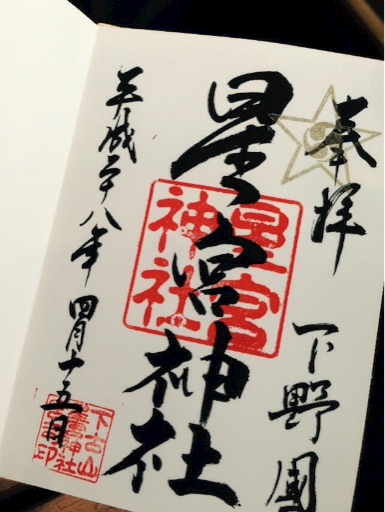 奉拝
下野國
星宮神社
星宮
神社
平成二十八年 四月十五日
下古山